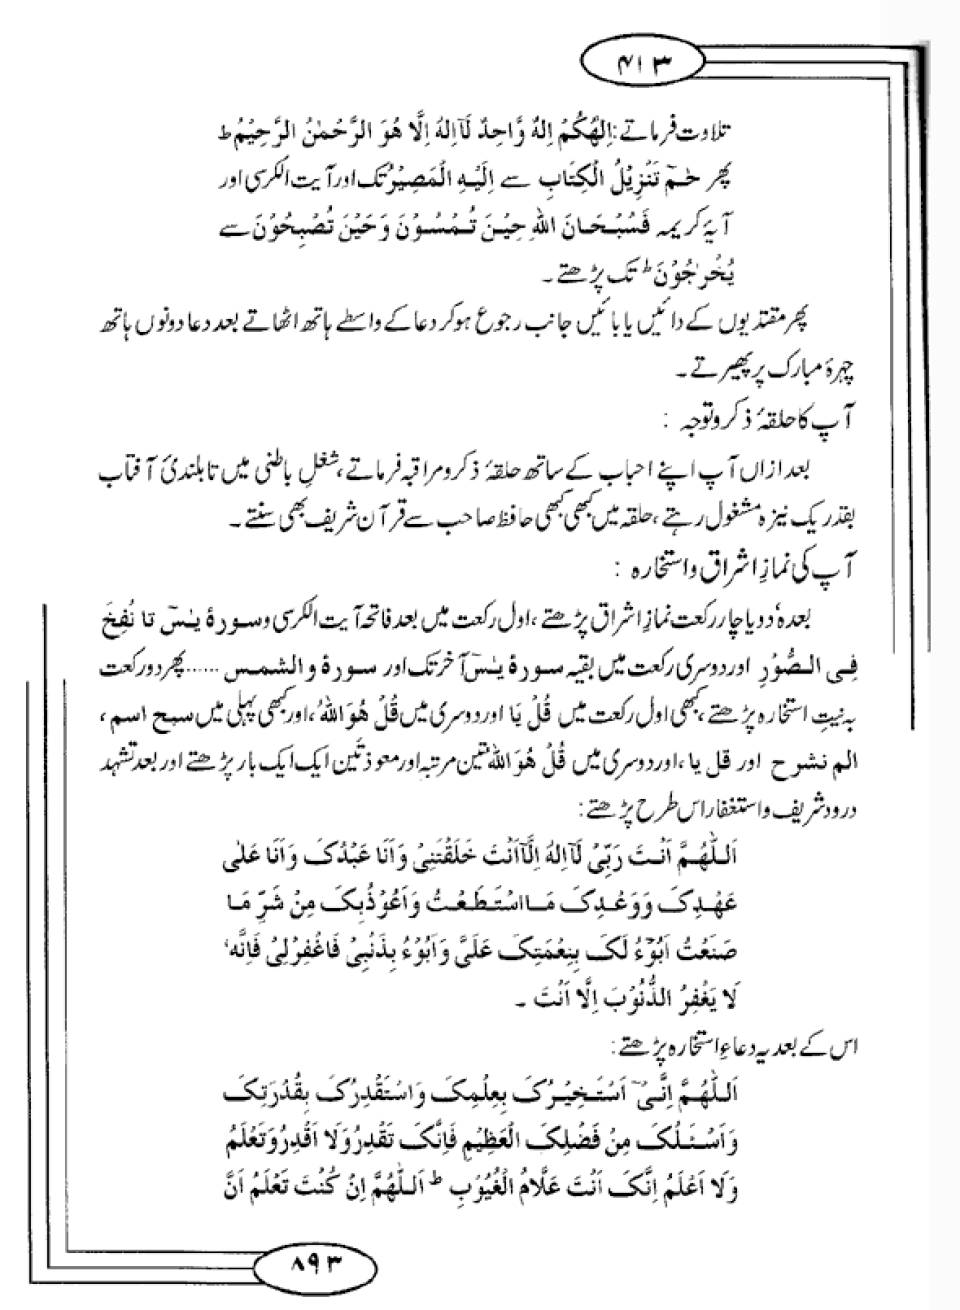 ۴۱۳
تلاوت فرماتے: اِلٰهُكُمْ اِلٰهٌ وَّاحِدٌ لَآاِلٰهَ اِلَّا هُوَ الرَّحْمٰنُ الرَّحِيْمُ ط
پھر حٰمٓ تَنْزِيْلُ الْكِتَابِ سے اِلَيْهِ الْمَصِيْرُ تک اور آیت الکرسی اور
آیۂ کریمہ فَسُبْحَانَ اللهِ حِيْنَ تُمْسُوْنَ وَحَيْنَ تُصْبِحُوْنَ سے
يُخْرَجُوْنَ ط تک پڑھتے۔
پھر مقتدیوں کے دائیں یا بائیں جانب رجوع ہو کر دعا کے واسطے ہاتھ اٹھاتے بعد دعا دونوں ہاتھ
چہرۂ مبارک پر پھیرتے۔
آپ کا حلقۂ ذکر و توجہ :
بعد ازاں آپ اپنے احباب کے ساتھ حلقۂ ذکر و مراقبہ فرماتے، شغلِ باطنی میں تا بلندیٔ آفتاب
بقدر یک نیزہ مشغول رہتے، حلقہ میں کبھی کبھی حافظ صاحب سے قرآن شریف بھی سنتے۔
آپ کی نمازِ اشراق و استخارہ :
بعدہٗ دو یا چار رکعت نمازِ اشراق پڑھتے، اول رکعت میں بعد فاتحہ آیت الکرسی و سورۂ یٰسٓ تا نُفِخَ
فِی الصُّوْرِ اور دوسری رکعت میں بقیہ سورۂ یٰسٓ آخر تک اور سورۂ والشمس ...... پھر دو رکعت
بہ نیتِ استخارہ پڑھتے، کبھی اول رکعت میں قُلْ یَا اور دوسری میں قُلْ هُوَ اللهُ، اور کبھی پہلی میں سبح اسم،
الم نشرح اور قل یا، اور دوسری میں قُلْ هُوَ اللهُ تین مرتبہ اور معوذتَین ایک ایک بار پڑھتے اور بعد تشہد
درود شریف و استغفار اس طرح پڑھتے:
اَللّٰهُمَّ اَنْتَ رَبِّیْ لَآاِلٰهَ اِلَّآ اَنْتَ خَلَقْتَنِیْ وَاَنَا عَبْدُکَ وَاَنَا عَلٰی
عَهْدِکَ وَوَعْدِکَ مَااسْتَطَعْتُ وَاَعُوْذُبِکَ مِنْ شَرِّ مَا
صَنَعْتُ اَبُوْٓءُ لَکَ بِنِعْمَتِکَ عَلَیَّ وَاَبُوْءُ بِذَنْبِیْ فَاغْفِرْلِیْ فَاِنَّهٗ
لَا یَغْفِرُ الذُّنُوْبَ اِلَّا اَنْتَ ۔
اس کے بعد یہ دعاءِ استخارہ پڑھتے:
اَللّٰهُمَّ اِنِّیْٓ اَسْتَخِیْرُکَ بِعِلْمِکَ وَاسْتَقْدِرُکَ بِقُدْرَتِکَ
وَاَسْئَلُکَ مِنْ فَضْلِکَ الْعَظِیْمِ فَاِنَّکَ تَقْدِرُ وَلَا اَقْدِرُ وَتَعْلَمُ
وَلَا اَعْلَمُ اِنَّکَ اَنْتَ عَلَّامُ الْغُیُوْبِ ط اَللّٰهُمَّ اِنْ کُنْتَ تَعْلَمُ اَنَّ
۸۹۳